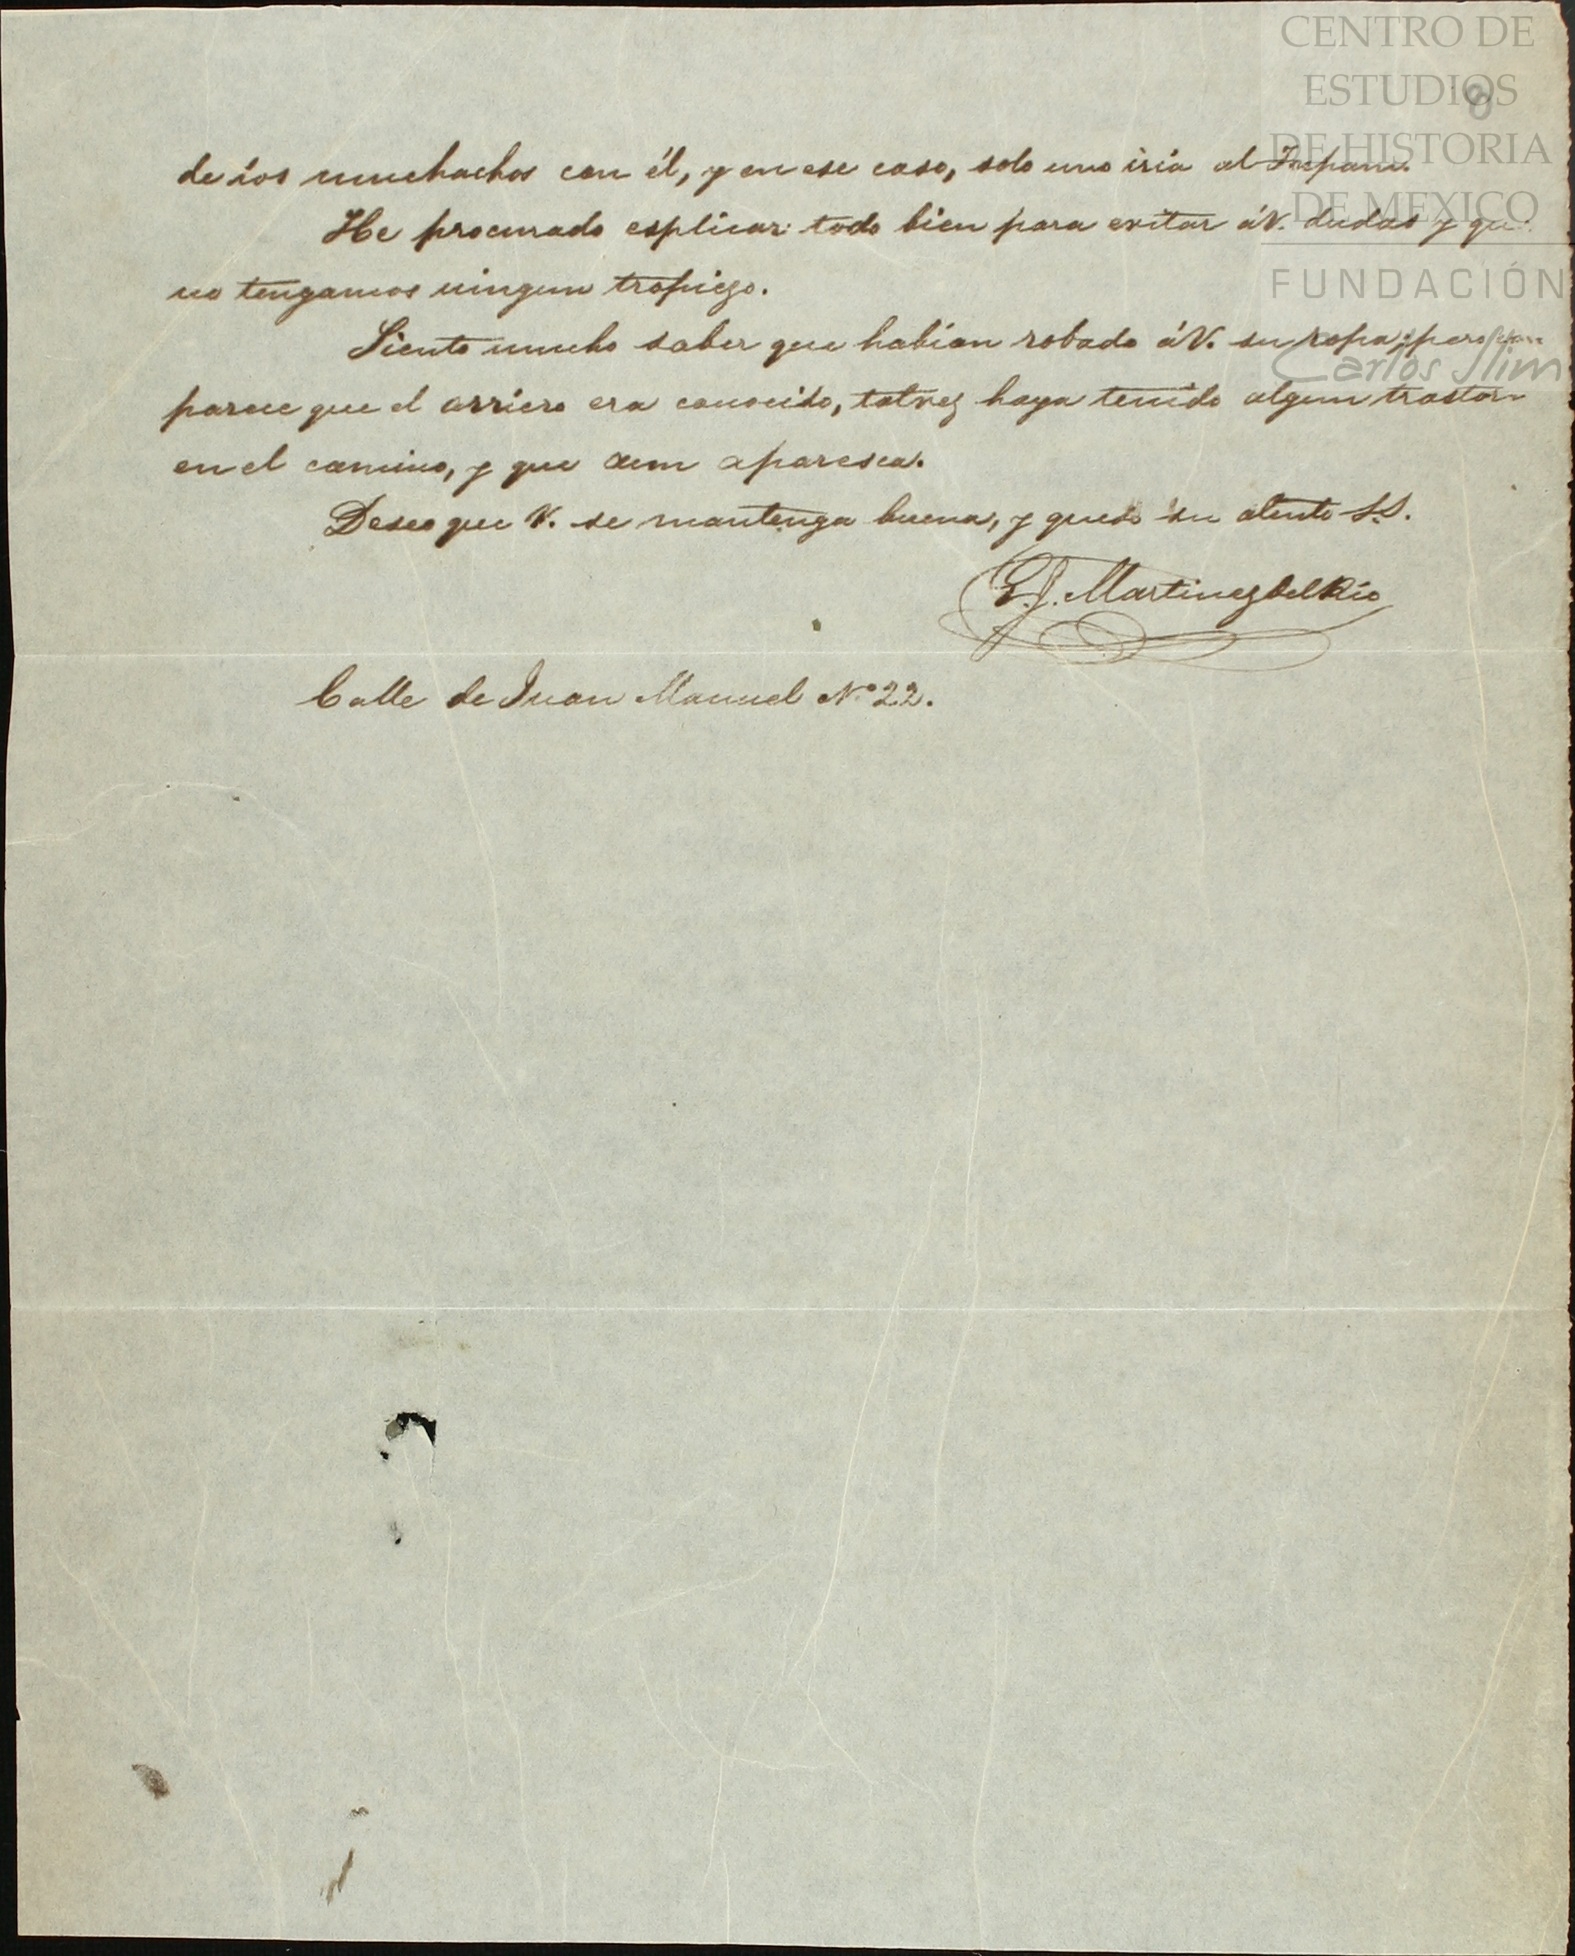 CENTRO DE
ESTUDIOS
DE HISTORIA
DE MEXICO
FUNDACIÓN
Carlos Slim
8
de los muchachos con él, y en ese caso, solo uno iria al
He procurado esplicar todo bien para evitar á V. dudas y que
no tengamos ningun tropiezo.
Siento mucho saber que habian robado á V. su ropa; pero
parece que el arriero era conocido, talvez haya tenido algun trastor
en el camino, y que aun aparesca.
Deseo que V. se mantenga buena, y quedo su atento S.S.
Martinez del Rio
Calle de Juan Manuel Nº 22.